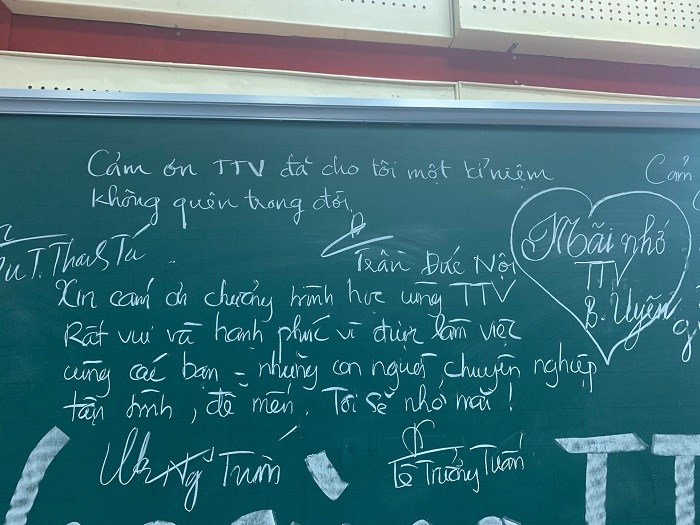 Cảm ơn TTV đã cho tôi một kỉ niệm
không quên trong đời.
Cảm
T. Thanh Tú
Trần Đức Nội
Mãi nhớ
TTV
B. Uyên
Xin cảm ơn chương trình học cùng TTV
Rất vui và hạnh phúc vì được làm việc
cùng các bạn - những con người chuyên nghiệp
tận tình, dễ mến. Tôi sẽ nhớ mãi!
Tuấn
Lê Trường Tuấn
TT